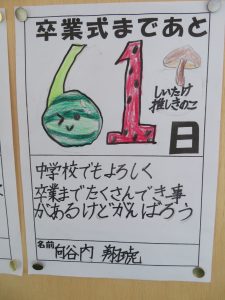 卒業式まであと
61
日
しいたけ
推しきのこ
中学校でもよろしく
卒業までたくさんでき事
があるけどがんばろう
名前 向谷内